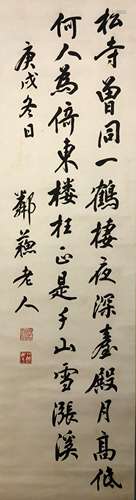 松寺曾同一鶴棲夜深臺殿月高低
何人為倚東樓柱正是千山雪漲溪
庚戌冬日
鄰蘇老人